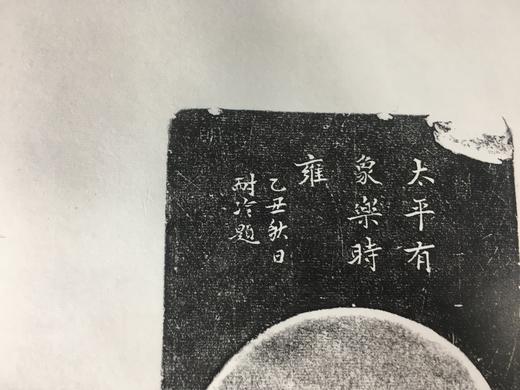 太平有
象樂時
雍
乙丑秋日
耐冷題